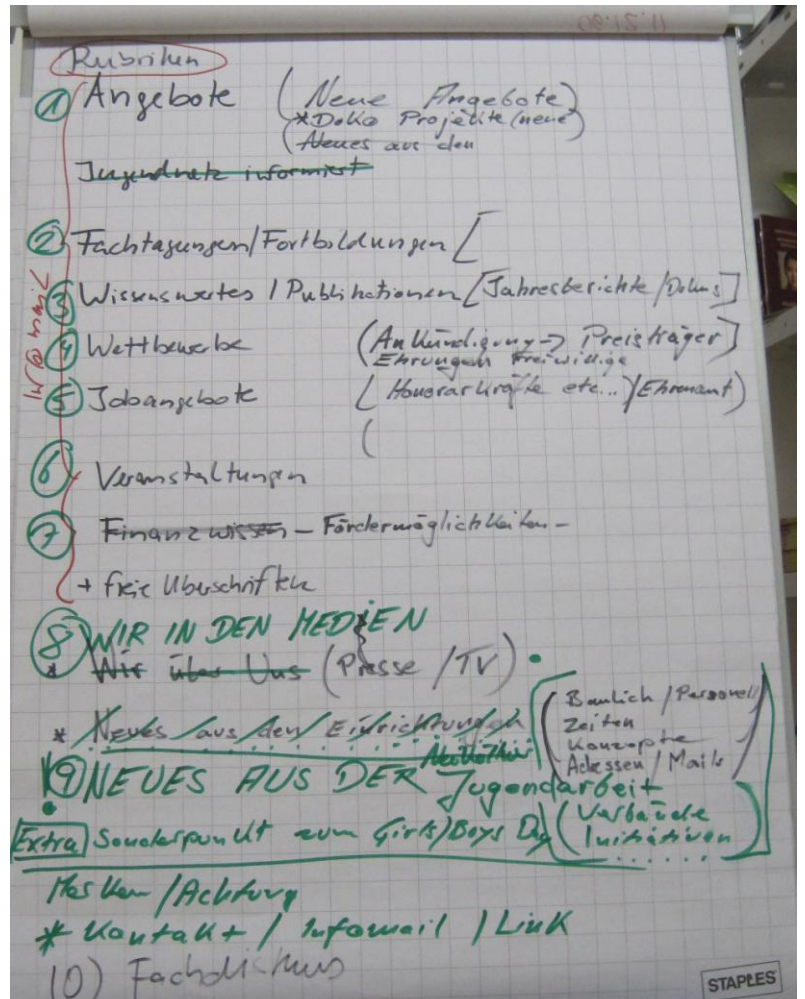 Rubriken
1 Angebote (Neue Angebote)
*Doko Projekte (neue)
(Neues aus den
Jugendnetz informiert
2 Fachtagungen/Fortbildungen [
3 Wissenswertes / Publikationen [Jahresberichte / Dokus]
4 Wettbewerbe (Ankündigung -> Preisträger]
Ehrungen Freiwillige
5 Jobangebote ( Honorarkräfte etc... / Ehrenamt)
(
6 Veranstaltungen
7 Finanzwissen - Fördermöglichkeiten -
+ freie Überschriften
8 WIR IN DEN MEDIEN
* Wir über Uns (Presse / TV)
* Neues aus den Einrichtungen
(Baulich / Personell
Zeiten
Konzepte
Adressen / Mails)
9 NEUES AUS DER Jugendarbeit
Extra Sonderpunkt zum Girls/Boys Day (Verbände
Initiativen)
/Achtung
* Kontakt / Infomail / Link
10)
STAPLES